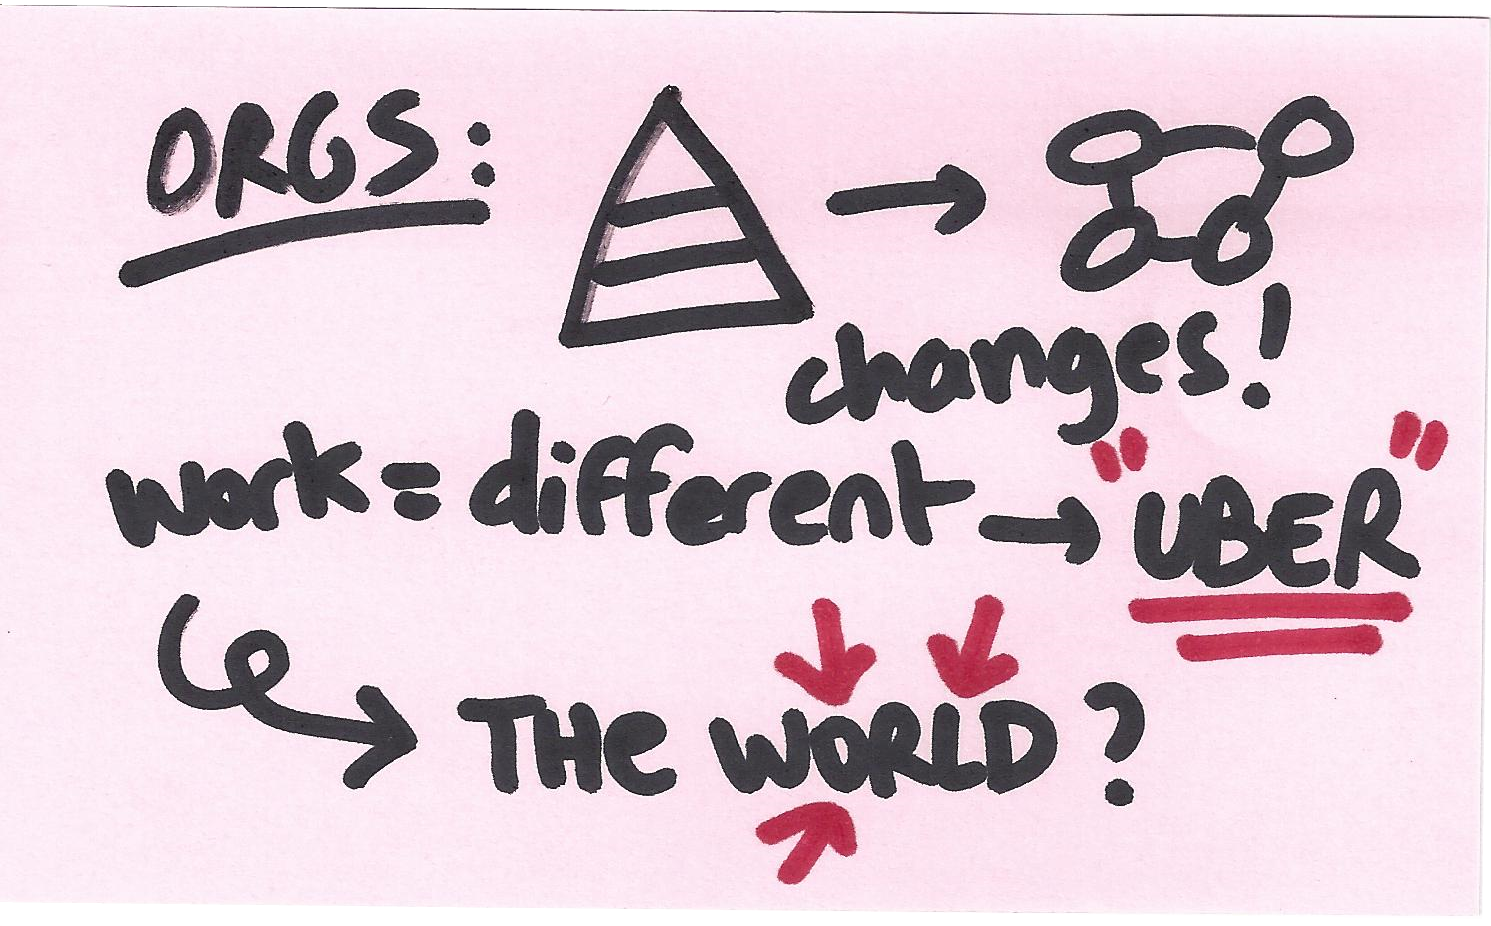 ORGS:
changes!
work = different → "UBER"
THE WORLD?